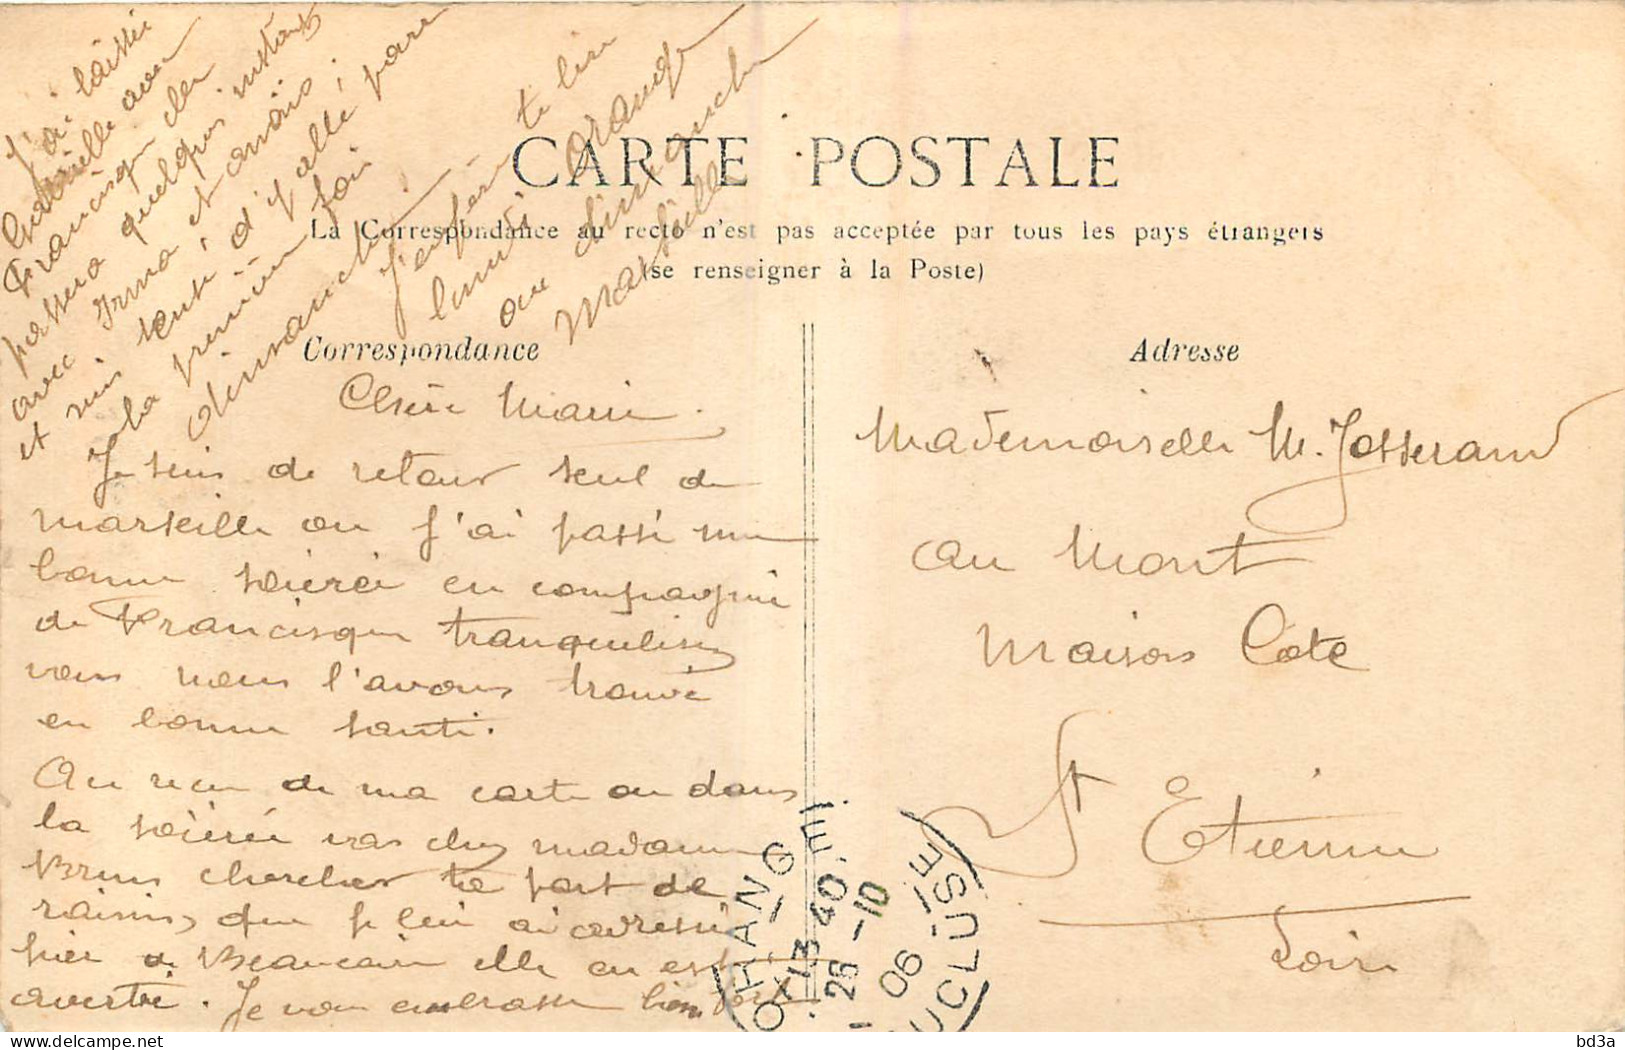 CARTE POSTALE
La Correspondance au recto n'est pas acceptée par tous les pays étrangers
(se renseigner à la Poste)
Correspondance
Adresse
Chère Marie.
Je suis de retour seul de
Marseille ou j'ai passé une
bonne soirée en compagnie
de Francisque tranquilisez
vous nous l'avons trouvé
en bonne santé.
Au reçu de ma carte ou dans
la soirée vas chez madame
Brun chercher ta part de
raisins, que je lui ai adressé
hier de Beaucaire elle en est
avertie. Je vous embrasse bien fort
J'ai laissé
avec
Francisque elle
passera quelques instants
avec Irma et Anaïs;
et suis tenté d'y allé pour
la première fois
dimanche.
J'espère te lire
lundi Orange
ou dimanche
Marseille
Mademoiselle M. Josserand
au Mont
Maison Cote
St Etienne
Loire
ORANGE
13 40
25 -10
06
VAUCLUSE
bd3a